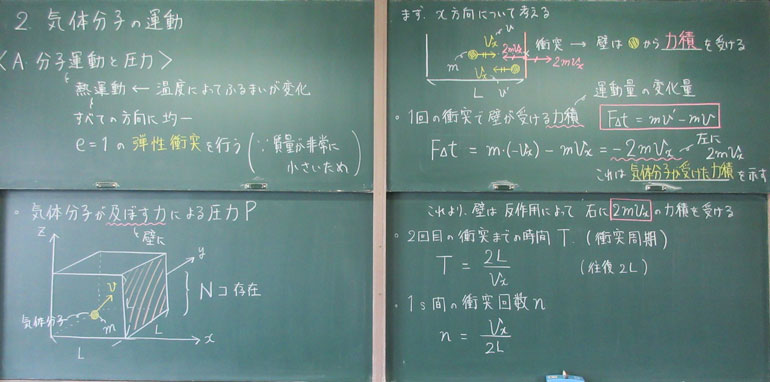 2. 気体分子の運動
〈A. 分子運動と圧力〉
熱運動 ← 温度によってふるまいが変化
すべての方向に均一
e=1の弾性衝突を行う(∵質量が非常に小さいため)
。気体分子が及ぼす力による圧力P
壁に
z
y
v
気体分子
m
L
L
L
x
Nコ存在
まず、x方向について考える
Vx
v
2mVx
m
Vx
2mVx
L
v'
衝突 → 壁は から力積を受ける
運動量の変化量
。1回の衝突で壁が受ける力積 FΔt = mv' - mv
FΔt = m·(-Vx) - mVx = -2mVx
左に2mVx
これは気体分子が受けた力積を示す
これより、壁は反作用によって右に2mVxの力積を受ける
。2回目の衝突までの時間T.(衝突周期)
T = 2L/Vx (往復2L)
。1s間の衝突回数n
n = Vx/2L